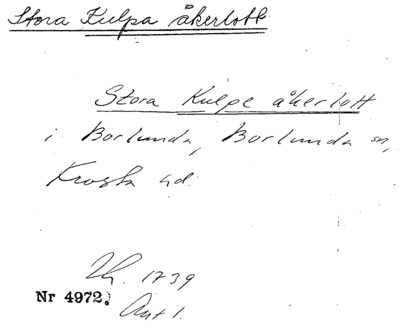 Stora Kulpa åkerlott
Stora Kulpe åkerlott
i Borlunda, Borlunda sn,
Frosta hd.
Lh. 1739
Nr 4972. Akt 1.